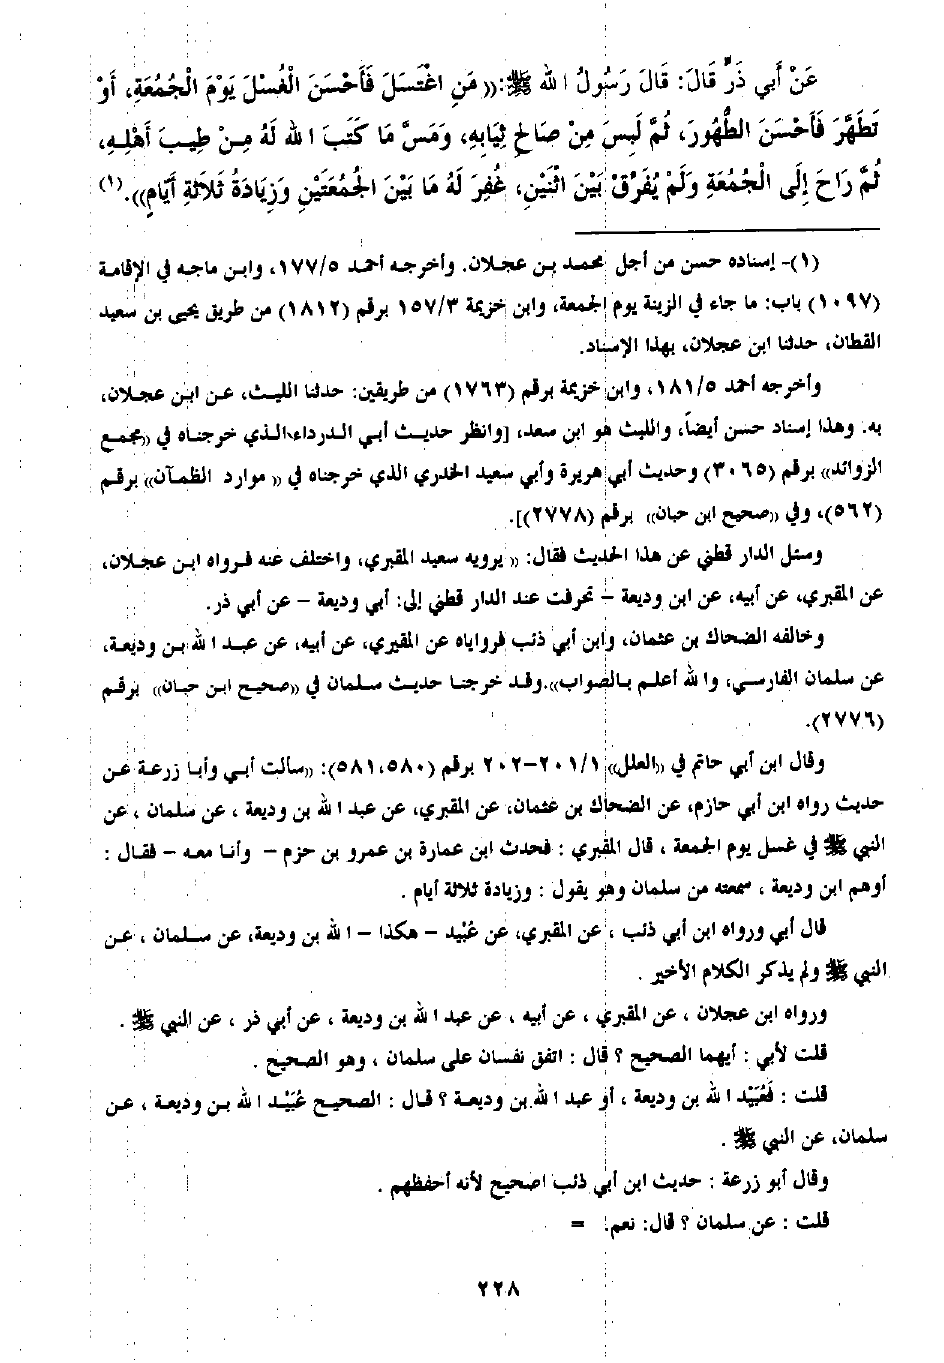 عَنْ أَبي ذَرٍّ قَالَ: قَالَ رَسُولُ الله ﷺ:(( مَنِ اغْتَسَلَ فَأَحْسَنَ الْغُسْلَ يَوْمَ الْجُمُعَةِ، أَوْ
تَطَهَّرَ فَأَحْسَنَ الطُّهُورَ، ثُمَّ لَبِسَ مِنْ صَالِحِ ثِيَابِهِ، وَمَسَّ مَا كَتَبَ الله لَهُ مِنْ طِيبِ أَهْلِهِ،
ثُمَّ رَاحَ إِلَى الْجُمُعَةِ وَلَمْ يُفَرِّقْ بَيْنَ اثْنَيْنِ، غُفِرَ لَهُ مَا بَيْنَ الجُمُعَتَيْنِ وَزِيَادَةُ ثَلاَثَةِ أَيَّامٍ)).(١)
(١)- إسناده حسن من أجل محمد بن عجلان. وأخرجه أحمد ١٧٧/٥، وابن ماجه في الإقامة
(١٠٩٧) باب: ما جاء في الزينة يوم الجمعة، وابن خزيمة ١٥٧/٣ برقم (١٨١٢) من طريق يحيى بن سعيد
القطان، حدثنا ابن عجلان، بهذا الإسناد.
وأخرجه أحمد ١٨١/٥، وابن خزيمة برقم (١٧٦٣) من طريقين: حدثنا الليث، عن ابن عجلان،
به. وهذا إسناد حسن أيضاً، والليث هو ابن سعد، [وانظر حديث أبي الدرداء الذي خرجناه في ((مجمع
الزوائد)) برقم (٣٠٦٥) وحديث أبي هريرة وأبي سعيد الخدري الذي خرجناه في (( موارد الظمآن)) برقم
(٥٦٢)، وفي ((صحيح ابن حبان)) برقم (٢٧٧٨)].
وسئل الدار قطني عن هذا الحديث فقال: (( يرويه سعيد المقبري، واختلف عنه فرواه ابن عجلان،
عن المقبري، عن أبيه، عن ابن وديعة – تحرفت عند الدار قطني إلى: أبي وديعة – عن أبي ذر.
وخالفه الضحاك بن عثمان، وابن أبي ذئب فروياه عن المقبري، عن أبيه، عن عبد الله بن وديعة،
عن سلمان الفارسي، والله أعلم بالصواب)).وقد خرجنا حديث سلمان في ((صحيح ابن حبان)) برقم
(٢٧٧٦).
وقال ابن أبي حاتم في ((العلل)) ٢٠١/١-٢٠٢ برقم (٥٨١،٥٨٠): ((سألت أبي وأبا زرعة عن
حديث رواه ابن أبي حازم، عن الضحاك بن عثمان، عن المقبري، عن عبد الله بن وديعة ، عن سلمان ، عن
النبي ﷺ في غسل يوم الجمعة ، قال المقبري : فحدث ابن عمارة بن عمرو بن حزم – وأنا معه – فقال :
أوهم ابن وديعة ، سمعته من سلمان وهو يقول : وزيادة ثلاثة أيام .
قال أبي ورواه ابن أبي ذئب ، عن المقبري، عن عُبَيد – هكذا – الله بن وديعة، عن سلمان ، عن
النبي ﷺ ولم يذكر الكلام الأخير .
ورواه ابن عجلان ، عن المقبري ، عن أبيه ، عن عبد الله بن وديعة ، عن أبي ذر ، عن النبي ﷺ .
قلت لأبي : أيهما الصحيح ؟ قال : اتفق نفسان على سلمان ، وهو الصحيح .
قلت : فَعُبَيْد الله بن وديعة ، أو عبد الله بن وديعة ؟ قال : الصحيح عُبَيْد الله بن وديعة ، عن
سلمان، عن النبي ﷺ .
وقال أبو زرعة : حديث ابن أبي ذئب اصحيح لأنه أحفظهم .
قلت : عن سلمان ؟ قال: نعم. =
٢٢٨